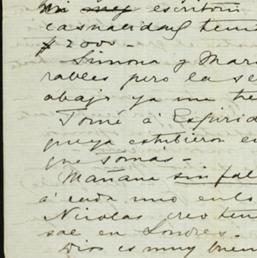 mi escritorio
casualidad tenia
$ 2000 -
Simona y Mari
rables pero la se
abajo ya me tie
Tomé á Espirid
que ya estubieron en
que Tomas -
Mañana sin fal
a cada uno en lo
Nicolas creo ten
sae en Londres.
Dios es muy buen